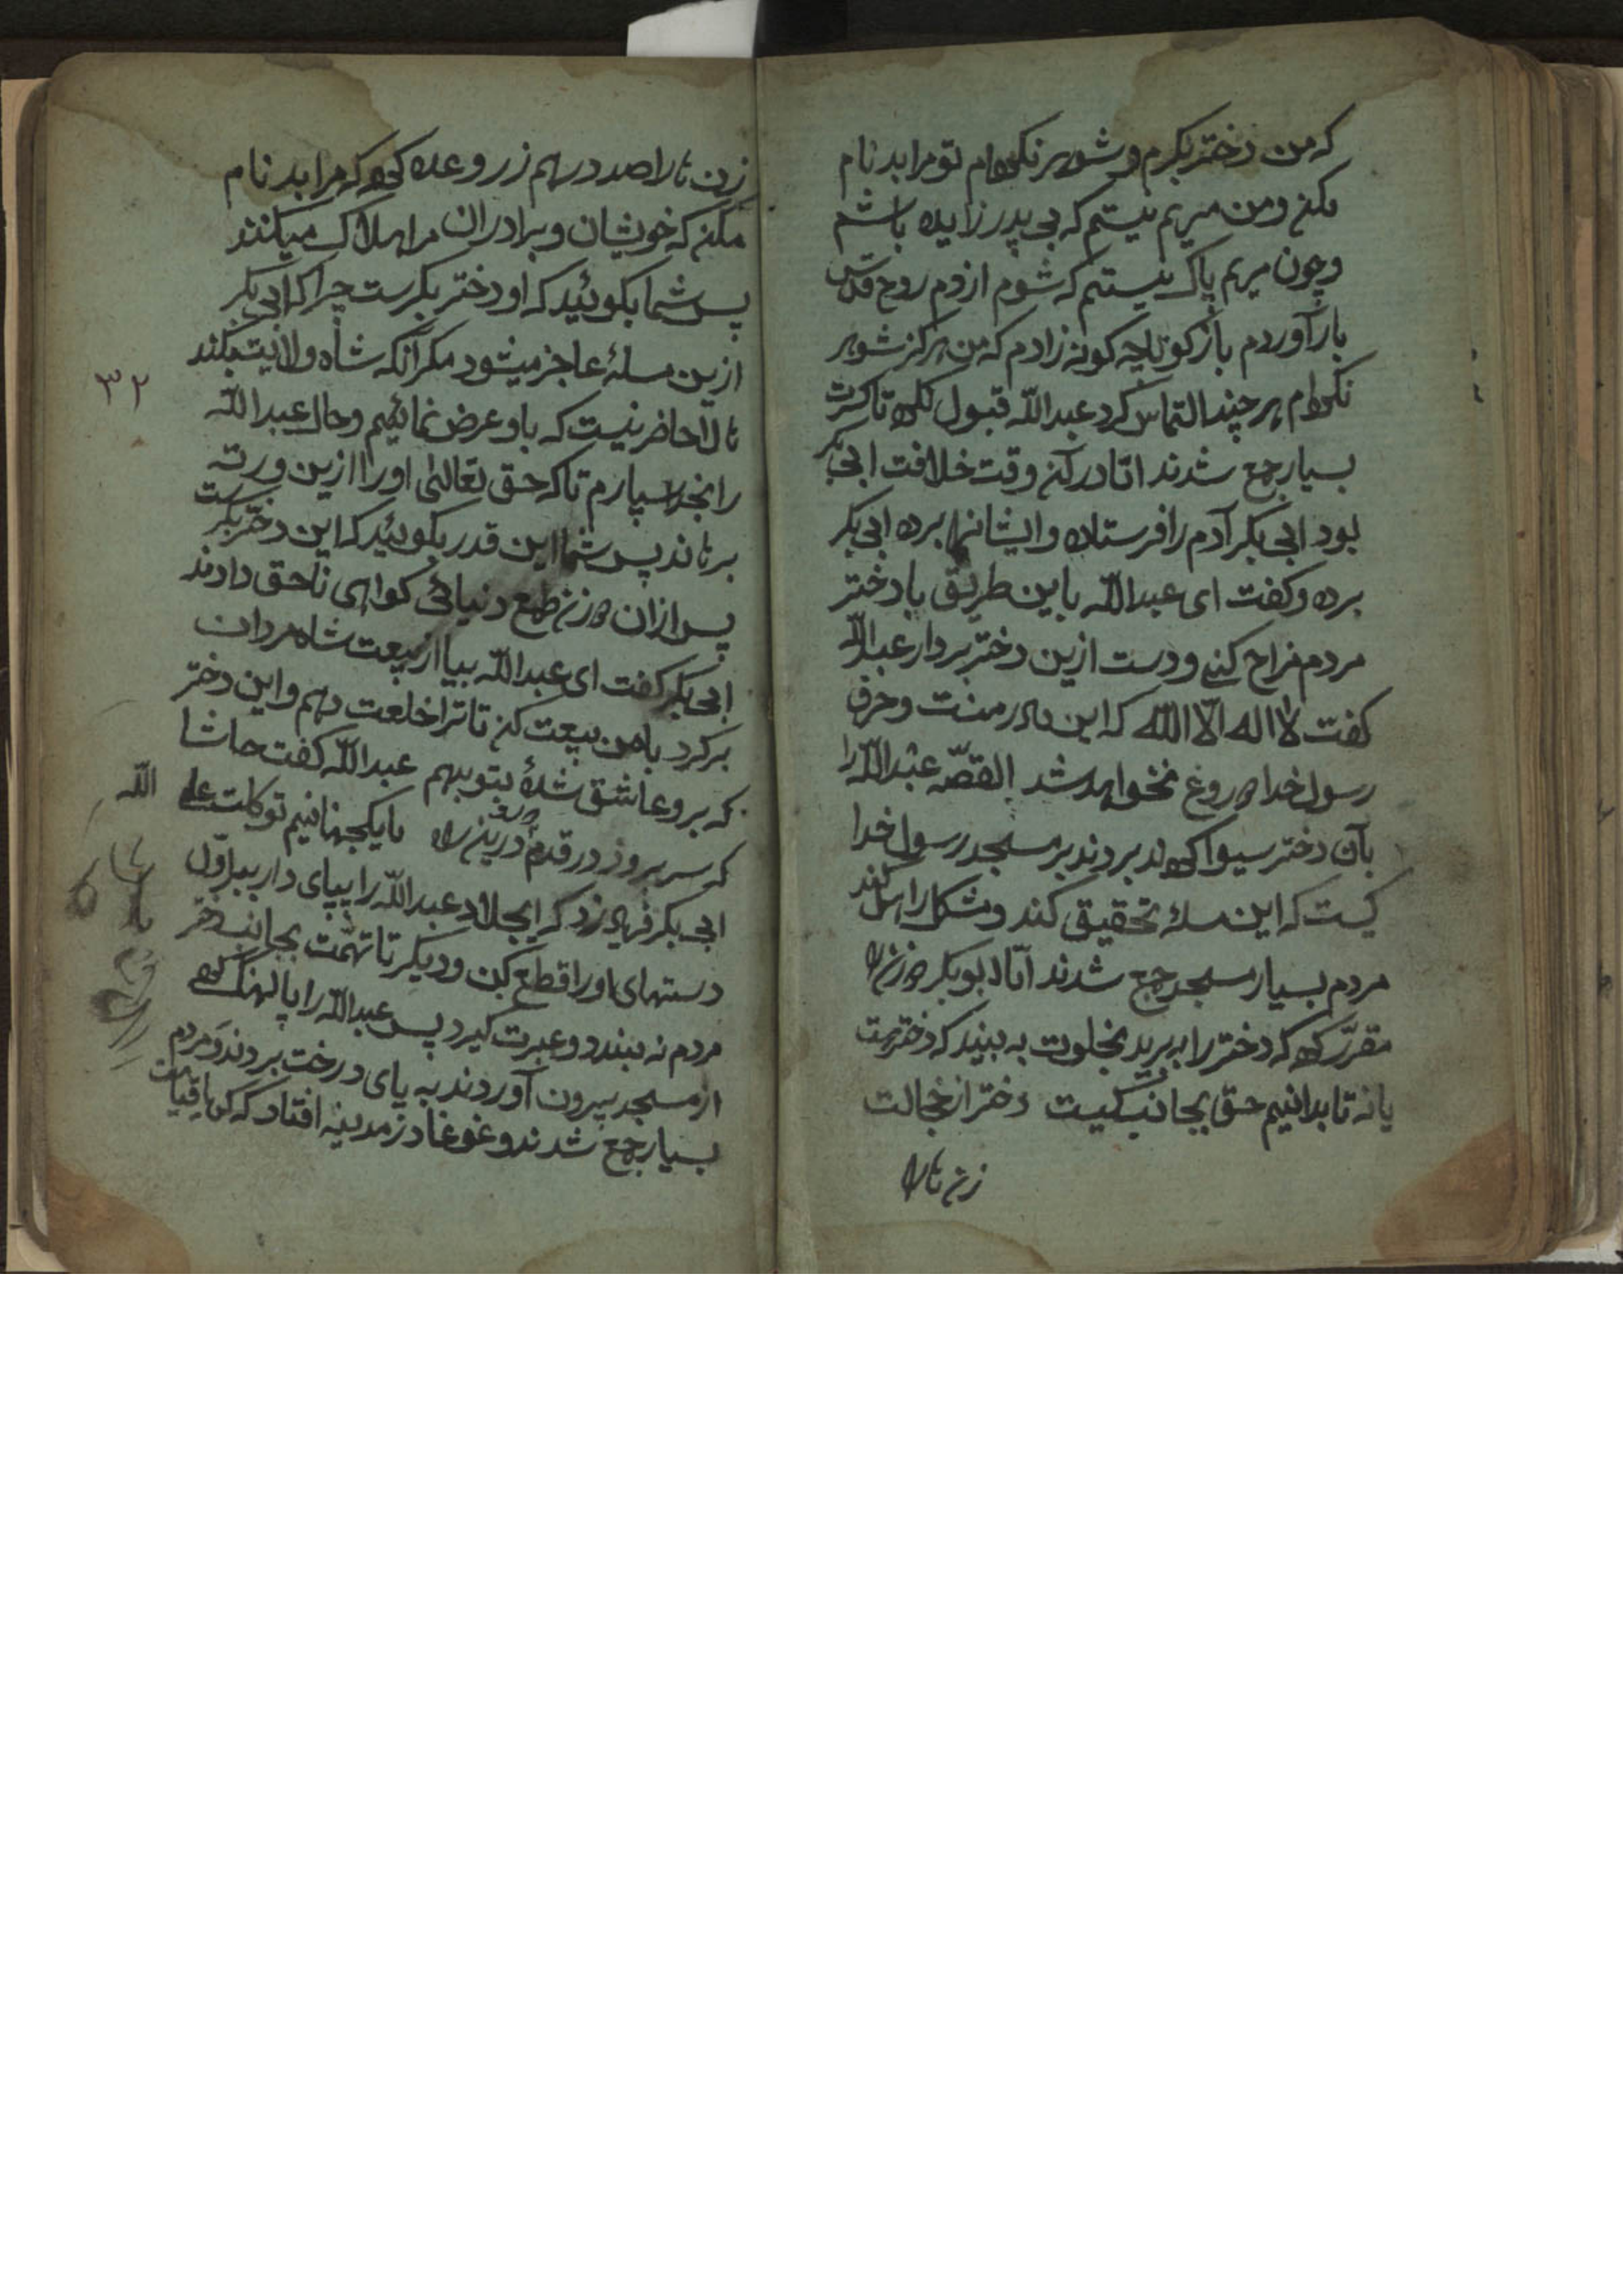 که من دختر بکرم و شوهر نکرده‌ام تو مرا بدنام
مکن و من مریم نیستم که بی پدر زاییده باشم
و چون مریم پاک نیستم که شوم از دم روح قدس
بارآوردم باز کو تا چه کونه زادم که من هرکز شوهر
نکرده‌ام هرچند التماس کرد عبدالله قبول نکرد تا کثرت
بسیار جمع شدند اما در آن وقت خلافت ابی بکر
بود ابی بکر آدم را فرستاده و ایشانها برده ابی بکر
برده و کفت ای عبدالله باین طریق با دختر
مردم مزاح کنی و دست ازین دختر بردار عبدالله
کفت لا اله الا الله که این مادر منست و حرف
رسول خدا دروغ نخواهد شد القصّه عبدالله را
بآن دختر سوا کرده بردند بر مسجد رسول خدا
کیست که این مسله تحقیق کند و مشکل را حل کند
مردم بسیار مسجد جمع شدند اما ابوبکر دو زن را
مقرّر کرد که دختر را ببرید بخلوت به بیند که دخترست
یا نه تا بدانیم حق بجانب کیست دختر از خجالت
زن ها را
زن ها را صد درهم زر وعده کرد که مرا بدنام
مکن که خویشان و برادران مرا هلاک میکنند
پس شما بکوئید که او دختر بکرست چرا که ابی بکر
ازین مسلهٔ عاجز میشود مکر آنکه شاه ولایت بکند
۳۲
حالا حاضر نیست که باو عرض نمائیم و حال عبدالله
را بخدا سپارم تا که حق تعالی او را ازین ورطه
برهاند پس شما این قدر بکوئید که این دختر بکرست
پس ازان دو زن طمع دنیائی کواهی ناحق دادند
ابی بکر کفت ای عبدالله بیا از بیعت شاه مردان
برکرد با من بیعت کن تا ترا خلعت دهم و این دختر
که برو عاشق شدهٔ بتو بدهم عبدالله کفت حاشا
که سر برود در قدم درین راه ما یکجهانیم توکلت علی الله
ابی بکر فریاد زد که ای جلاد عبدالله را بپای دار ببر اوّل
دستهای او را قطع کن و دیکر تا تهمت بجانب دختر
مردم نه بندد و عبرت کیرد پس عبدالله را پالهنک کرده
از مسجد بیرون آوردند به پای درخت بردند و مردم
بسیار جمع شدند و غوغا در مدینه افتاد که کویا قیامت